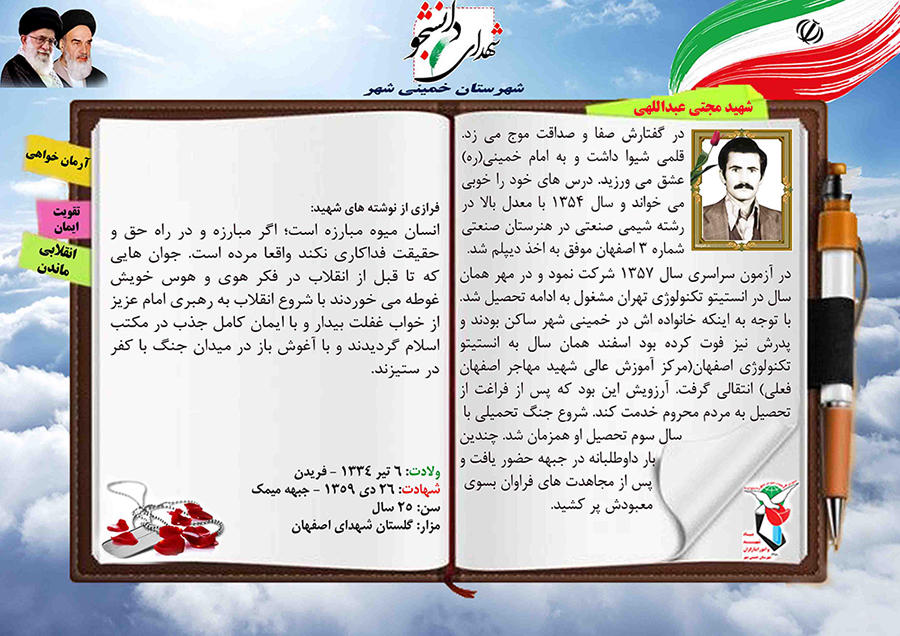 شهدای دانشجو
شهرستان خمینی شهر
شهید مجتبی عبداللهی
در گفتارش صفا و صداقت موج می زد.
قلمی شیوا داشت و به امام خمینی(ره)
عشق می ورزید. درس های خود را خوبی
می خواند و سال ۱۳۵۴ با معدل بالا در
رشته شیمی صنعتی در هنرستان صنعتی
شماره ۳ اصفهان موفق به اخذ دیپلم شد.
در آزمون سراسری سال ۱۳۵۷ شرکت نمود و در مهر همان
سال در انستیتو تکنولوژی تهران مشغول به ادامه تحصیل شد.
با توجه به اینکه خانواده اش در خمینی شهر ساکن بودند و
پدرش نیز فوت کرده بود اسفند همان سال به انستیتو
تکنولوژی اصفهان(مرکز آموزش عالی شهید مهاجر اصفهان
فعلی) انتقالی گرفت. آرزویش این بود که پس از فراغت از
تحصیل به مردم محروم خدمت کند. شروع جنگ تحمیلی با
سال سوم تحصیل او همزمان شد. چندین
بار داوطلبانه در جبهه حضور یافت و
پس از مجاهدت های فراوان بسوی
معبودش پر کشید.
آرمان خواهی
تقویت
ایمان
انقلابی
ماندن
فرازی از نوشته های شهید:
انسان میوه مبارزه است؛ اگر مبارزه و در راه حق و
حقیقت فداکاری نکند واقعا مرده است. جوان هایی
که تا قبل از انقلاب در فکر هوی و هوس خویش
غوطه می خوردند با شروع انقلاب به رهبری امام عزیز
از خواب غفلت بیدار و با ایمان کامل جذب در مکتب
اسلام گردیدند و با آغوش باز در میدان جنگ با کفر
در ستیزند.
ولادت: ۶ تیر ۱۳۳۴ - فریدن
شهادت: ۲۶ دی ۱۳۵۹ - جبهه میمک
سن: ۲۵ سال
مزار: گلستان شهدای اصفهان